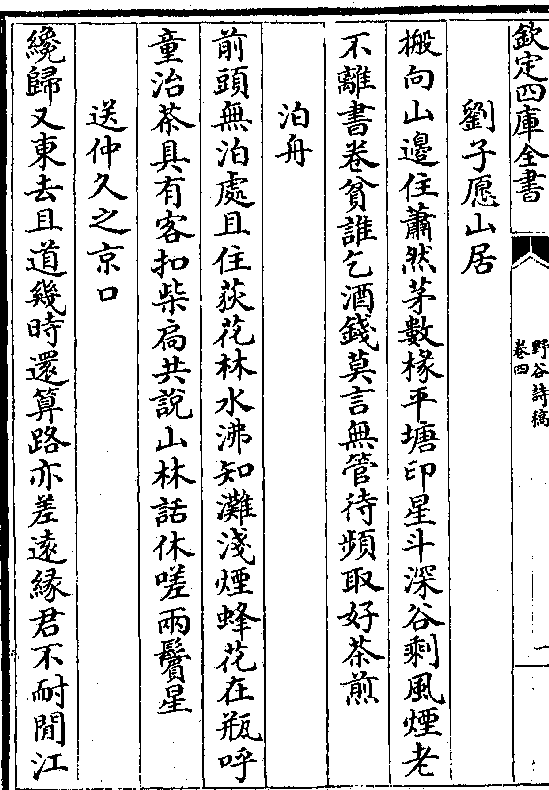 欽定四庫全書
野谷詩稿
卷四
一
劉子愿山居
搬向山邊住蕭然茅數椽平塘印星斗深谷剩風煙老
不離書卷貧誰乞酒錢莫言無管待頻取好茶煎
泊舟
前頭無泊處且住荻花林水沸知灘淺煙蜂花在瓶呼
童治茶具有客扣柴扃共說山林話休嗟兩鬢星
送仲久之京口
纔歸又東去且道幾時還算路亦差遠緣君不耐閒江